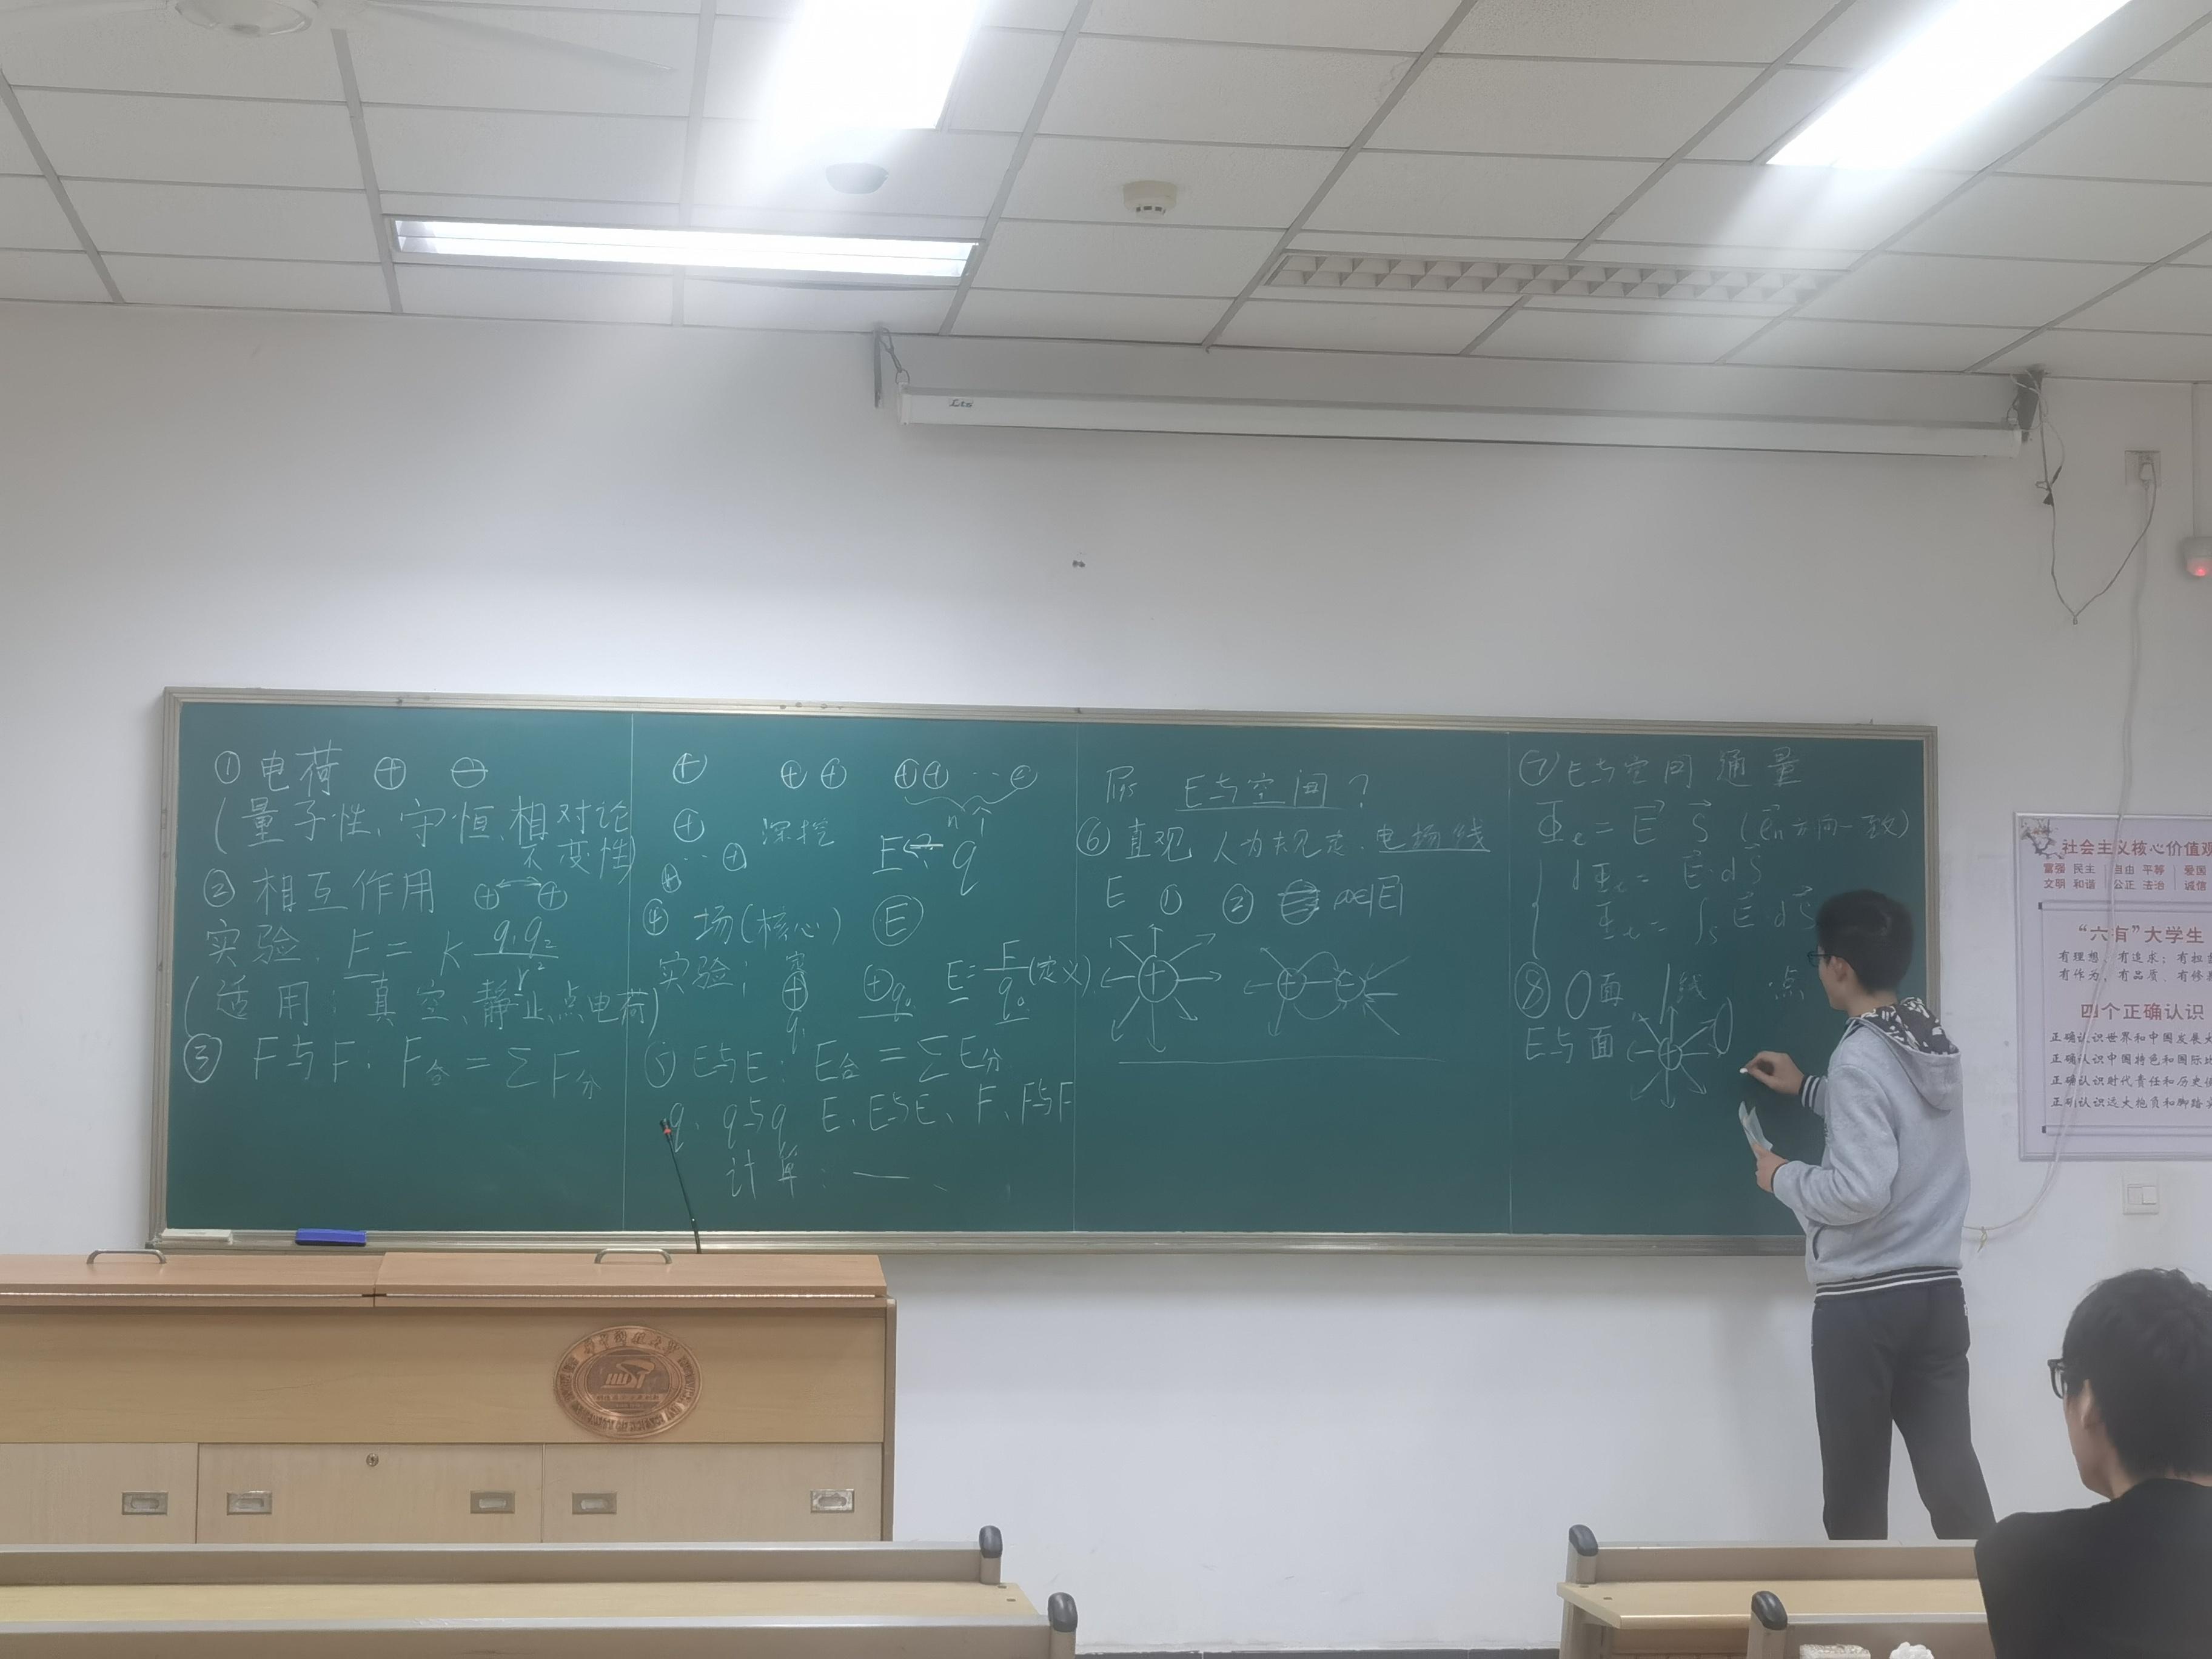 ① 电荷 ⊕ ⊖
(量子性、守恒、相对论
不变性)
② 相互作用 ⊕ ⊕
实验. F = K q₁q₂/r²
(适用:真空、静止、点电荷)
③ F与F: F合 = ∑F分
⊕ ⊕⊕ ⊕⊕ … ⊕
n个
⊕ 深挖
… ⊕
⊕
F q
④ 场(核心) Ⓔ
实验: ⊕ ⊕q₀ E = F/q₀ (定义)
q
⑤ E与E: E合 = ∑E分
q、q与q E、E与E、F、F与F
计算:—
E与空间?
⑥ 直观 人为规定、电场线
E ① ② ∝|E|
+
⑦ E与空间 通量
Φe = E⃗ S⃗ (e⃗n方向一致)
dΦe = E⃗·dS⃗
Φe = ∫s E⃗·dS⃗
⑧ 面 线 点
E与面
Lto
社会主义核心价值观
富强 民主 自由 平等 爱国
文明 和谐 公正 法治 诚信
“六有”大学生
有理想、有追求;有担
有作为、有品质、有修
四个正确认识
正确认识世界和中国发展大
正确认识中国特色和国际比
正确认识时代责任和历史使
正确认识远大抱负和脚踏实